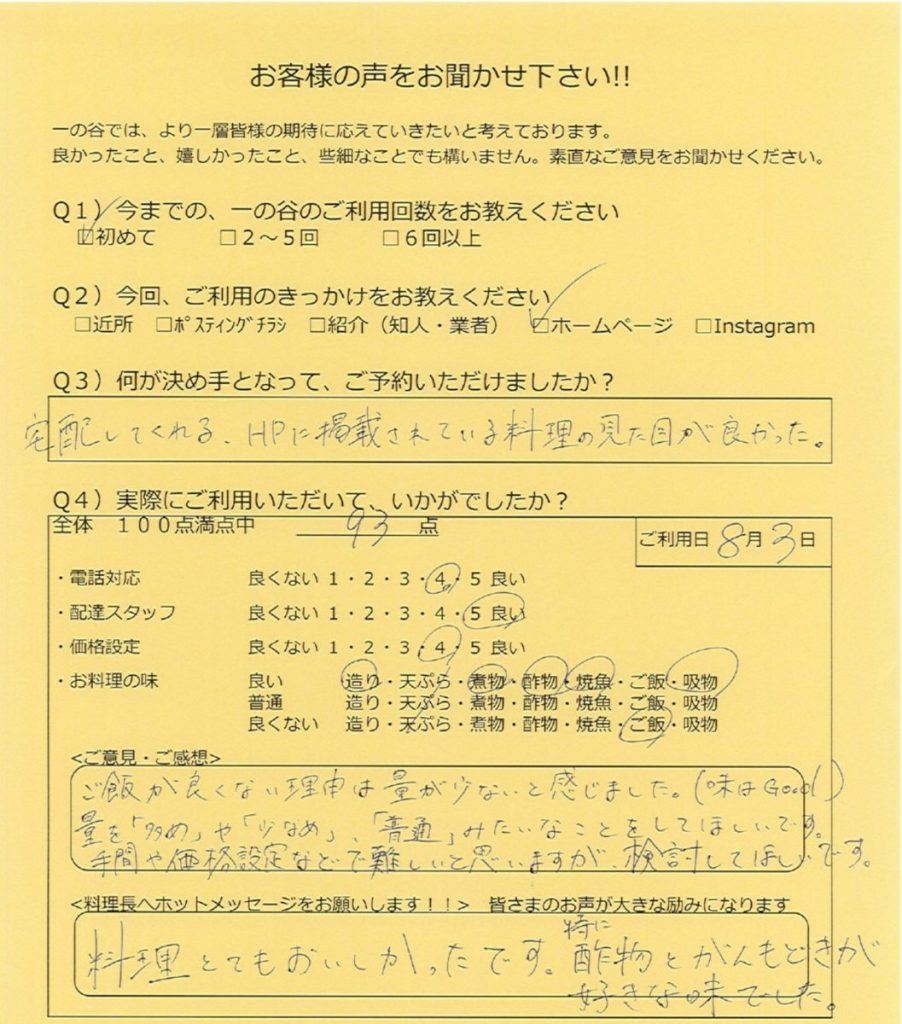 お客様の声をお聞かせ下さい!!
一の谷では、より一層皆様の期待に応えていきたいと考えております。
良かったこと、嬉しかったこと、些細なことでも構いません。素直なご意見をお聞かせください。
Q1）今までの、一の谷のご利用回数をお教えください
☑初めて　□2～5回　□6回以上
Q2）今回、ご利用のきっかけをお教えください
□近所　□ﾎﾟｽﾃｨﾝｸﾞﾁﾗｼ　□紹介（知人・業者）　☑ホームページ　□Instagram
Q3）何が決め手となって、ご予約いただけましたか？
宅配してくれる、HPに掲載されている料理の見た目が良かった。
Q4）実際にご利用いただいて、いかがでしたか？
全体　100点満点中　93　点
ご利用日 8月 3日
・電話対応　良くない 1・2・3・4・5 良い
・配達スタッフ　良くない 1・2・3・4・5 良い
・価格設定　良くない 1・2・3・4・5 良い
・お料理の味　良い　造り・天ぷら・煮物・酢物・焼魚・ご飯・吸物
普通　造り・天ぷら・煮物・酢物・焼魚・ご飯・吸物
良くない　造り・天ぷら・煮物・酢物・焼魚・ご飯・吸物
<ご意見・ご感想>
ご飯が良くない理由は量が少ないと感じました。(味はGood!)
量を「多め」や「少なめ」、「普通」みたいなことをしてほしいです。
手間や価格設定などで難しいと思いますが、検討してほしいです。
<料理長へホットメッセージをお願いします！！>　皆さまのお声が大きな励みになります
料理とてもおいしかったです。特に酢物とがんもどきが
好きな味でした。